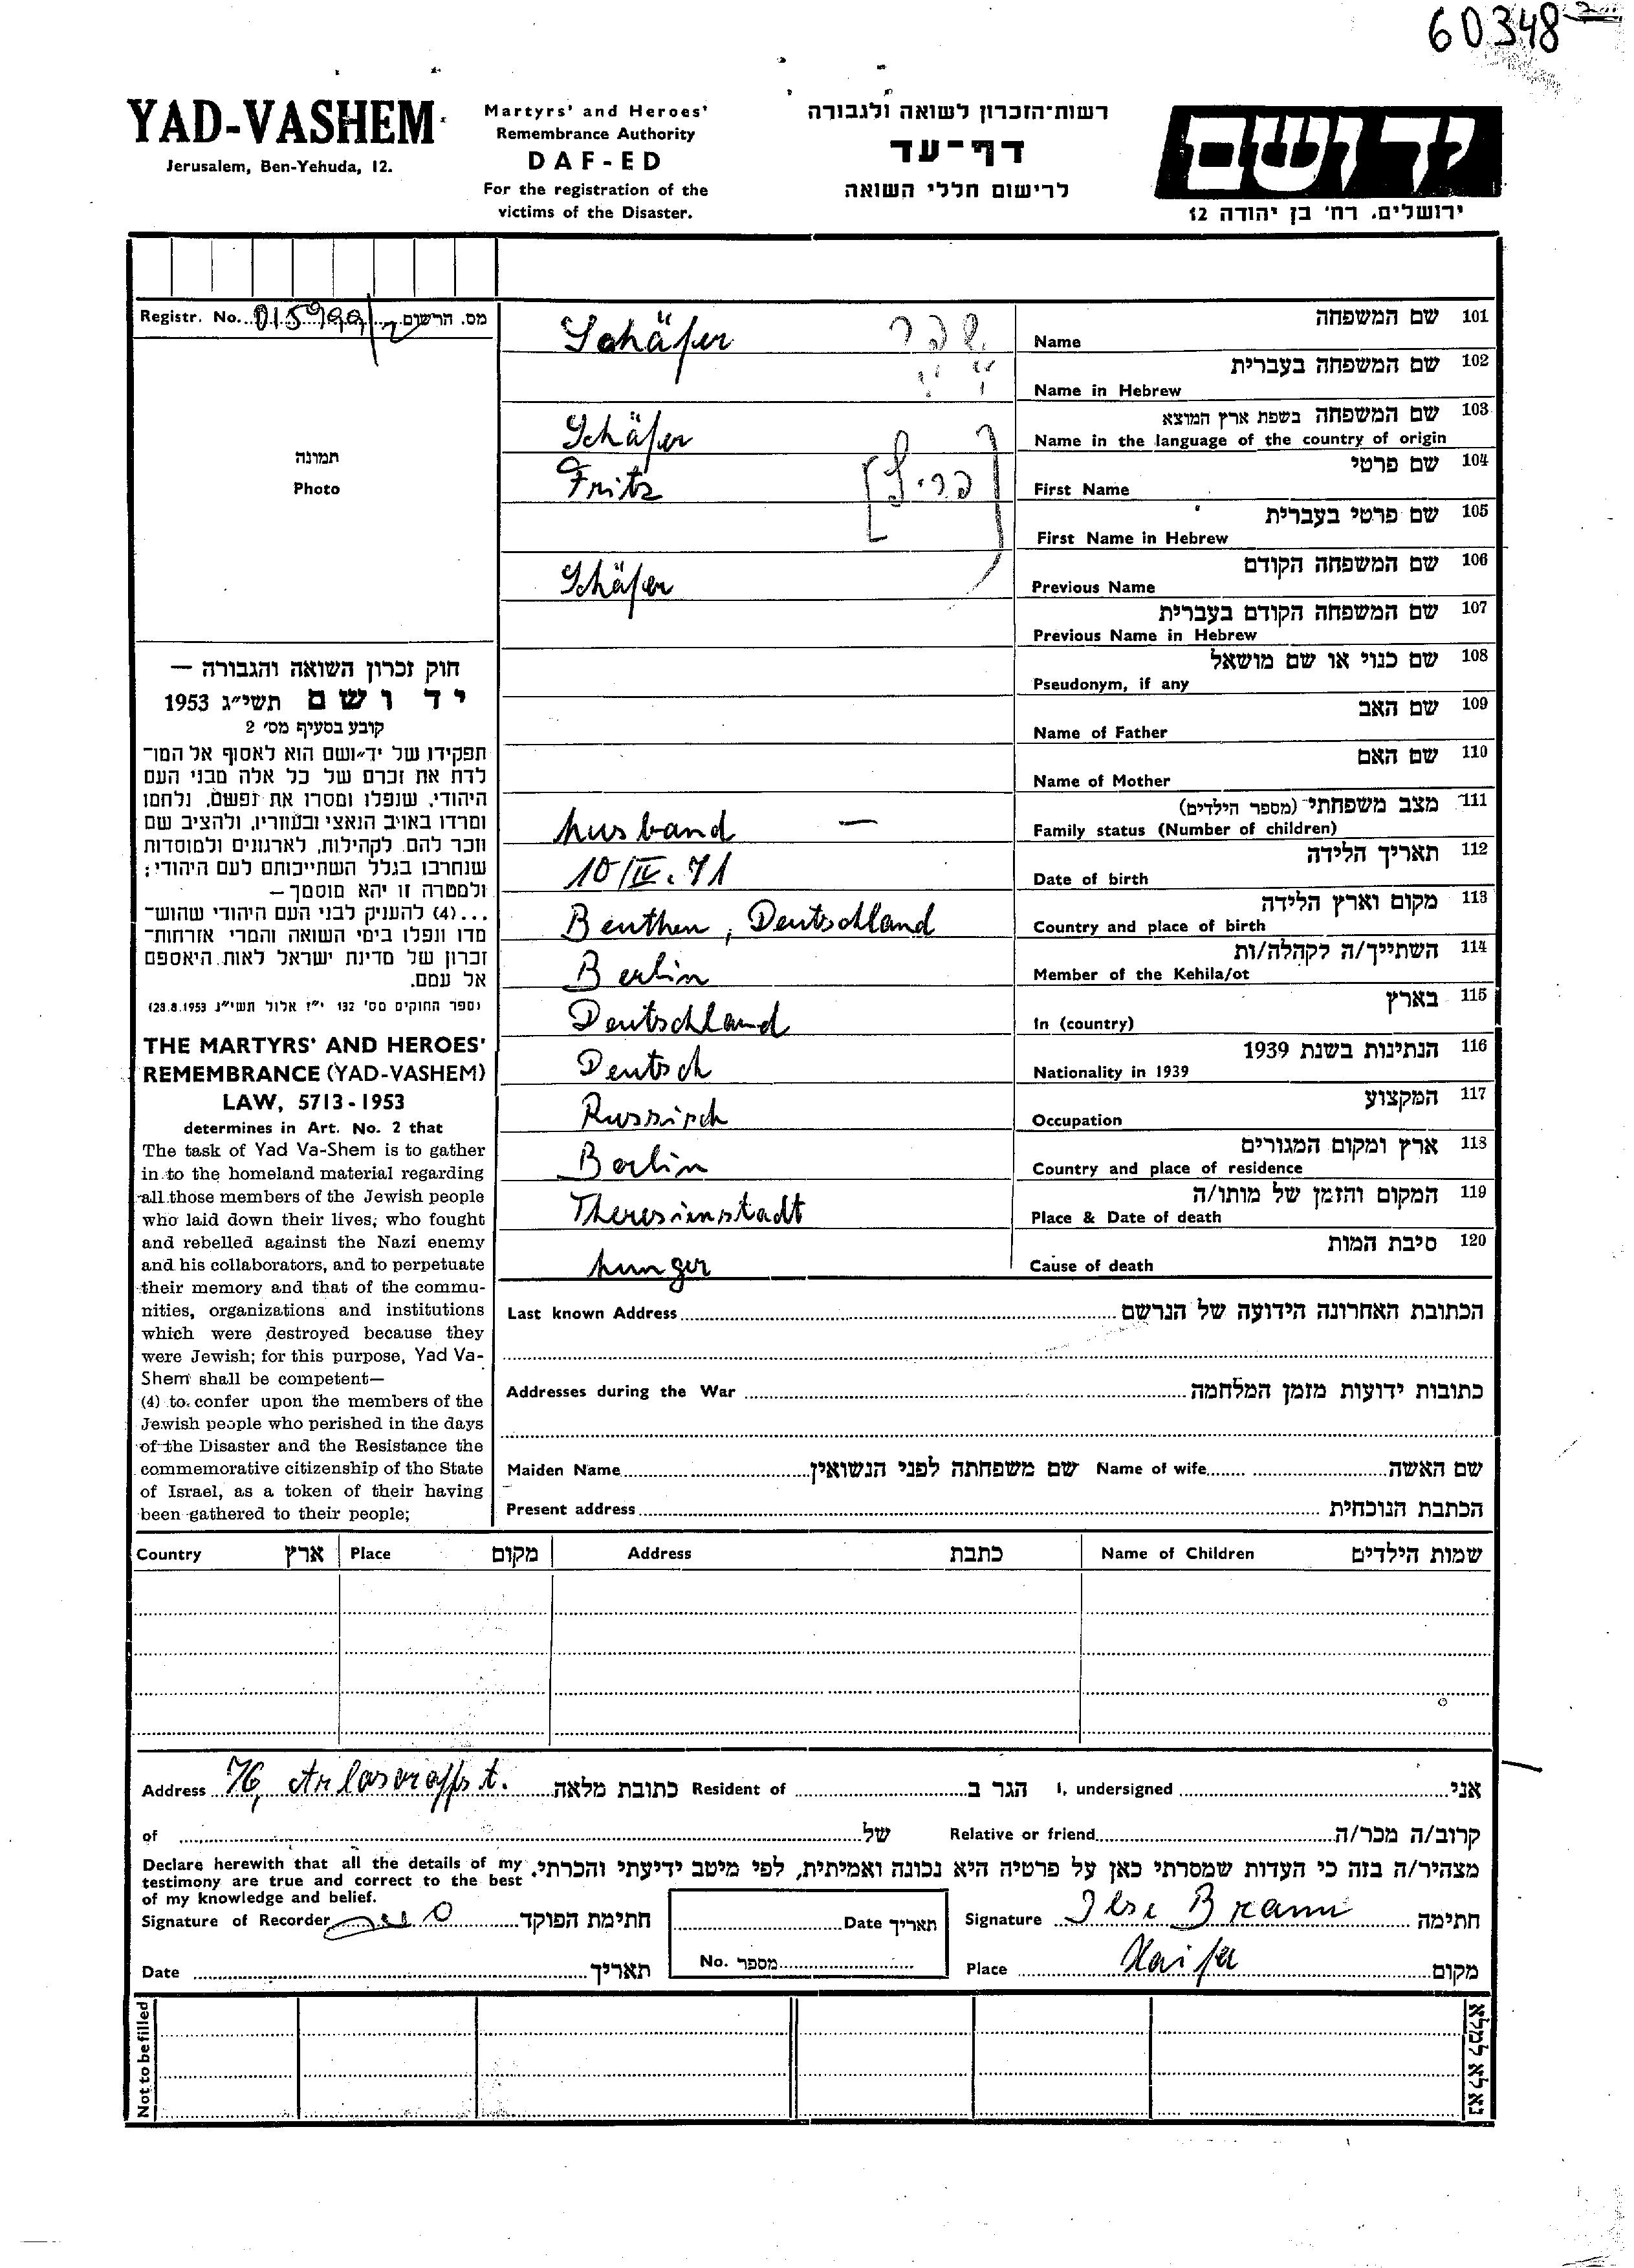 60348
YAD-VASHEM
Jerusalem, Ben-Yehuda, 12.
Martyrs' and Heroes'
Remembrance Authority
DAF-ED
For the registration of the
victims of the Disaster.
רשות־הזכרון לשואה ולגבורה
דף־עד
לרישום חללי השואה
יד ושם
ירושלים, רח' בן יהודה 12
Registr. No. מס. הרשום
תמונה
Photo
חוק זכרון השואה והגבורה —
יד ושם תשי״ג 1953
קובע בסעיף מס' 2
תפקידו של יד־ושם הוא לאסוף אל המו־
לדת את זכרם של כל אלה מבני העם
היהודי, שנפלו ומסרו את נפשם, נלחמו
ומרדו באויב הנאצי ובעוזריו, ולהציב שם
וזכר להם, לקהילות, לארגונים ולמוסדות
שנחרבו בגלל השתייכותם לעם היהודי;
ולמטרה זו יהא מוסמך —
...(4) להעניק לבני העם היהודי שהוש־
מדו ונפלו בימי השואה והמרי אזרחות־
זכרון של מדינת ישראל לאות היאספם
אל עמם.
(ספר החוקים מס' 132 י״ז אלול תשי״ג 28.8.1953)
THE MARTYRS' AND HEROES'
REMEMBRANCE (YAD-VASHEM)
LAW, 5713-1953
determines in Art. No. 2 that
The task of Yad Va-Shem is to gather
in to the homeland material regarding
all those members of the Jewish people
who laid down their lives, who fought
and rebelled against the Nazi enemy
and his collaborators, and to perpetuate
their memory and that of the commu-
nities, organizations and institutions
which were destroyed because they
were Jewish; for this purpose, Yad Va-
Shem shall be competent—
(4) to confer upon the members of the
Jewish people who perished in the days
of the Disaster and the Resistance the
commemorative citizenship of the State
of Israel, as a token of their having
been gathered to their people;
Schäfer שפר Name שם המשפחה 101
Name in Hebrew שם המשפחה בעברית 102
Schäfer Name in the language of the country of origin שם המשפחה בשפת ארץ המוצא 103
Fritz First Name שם פרטי 104
First Name in Hebrew שם פרטי בעברית 105
Schäfer Previous Name שם המשפחה הקודם 106
Previous Name in Hebrew שם המשפחה הקודם בעברית 107
Pseudonym, if any שם כנוי או שם מושאל 108
Name of Father שם האב 109
Name of Mother שם האם 110
husband — Family status (Number of children) מצב משפחתי (מספר הילדים) 111
10/IV.71 Date of birth תאריך הלידה 112
Beuthen, Deutschland Country and place of birth מקום וארץ הלידה 113
Berlin Member of the Kehila/ot השתייך/ה לקהלה/ות 114
Deutschland In (country) בארץ 115
Deutsch Nationality in 1939 הנתינות בשנת 1939 116
Russisch Occupation המקצוע 117
Berlin Country and place of residence ארץ ומקום המגורים 118
Theresienstadt Place & Date of death המקום והזמן של מותו/ה 119
hunger Cause of death סיבת המות 120
Last known Address הכתובת האחרונה הידועה של הנרשם
Addresses during the War כתובות ידועות מזמן המלחמה
Maiden Name שם משפחתה לפני הנשואין Name of wife שם האשה
Present address הכתבת הנוכחית
Country ארץ Place מקום Address כתבת Name of Children שמות הילדים
Address 76, כתובת מלאה Resident of הגר ב I, undersigned אני
of של Relative or friend קרוב/ה מכר/ה
Declare herewith that all the details of my
testimony are true and correct to the best
of my knowledge and belief.
מצהיר/ה בזה כי העדות שמסרתי כאן על פרטיה היא נכונה ואמיתית, לפי מיטב ידיעתי והכרתי.
Signature of Recorder חתימת הפוקד Date תאריך Signature Ilse חתימה
Date תאריך No. מספר Place Haifa מקום
Not to be filled נא לא למלא